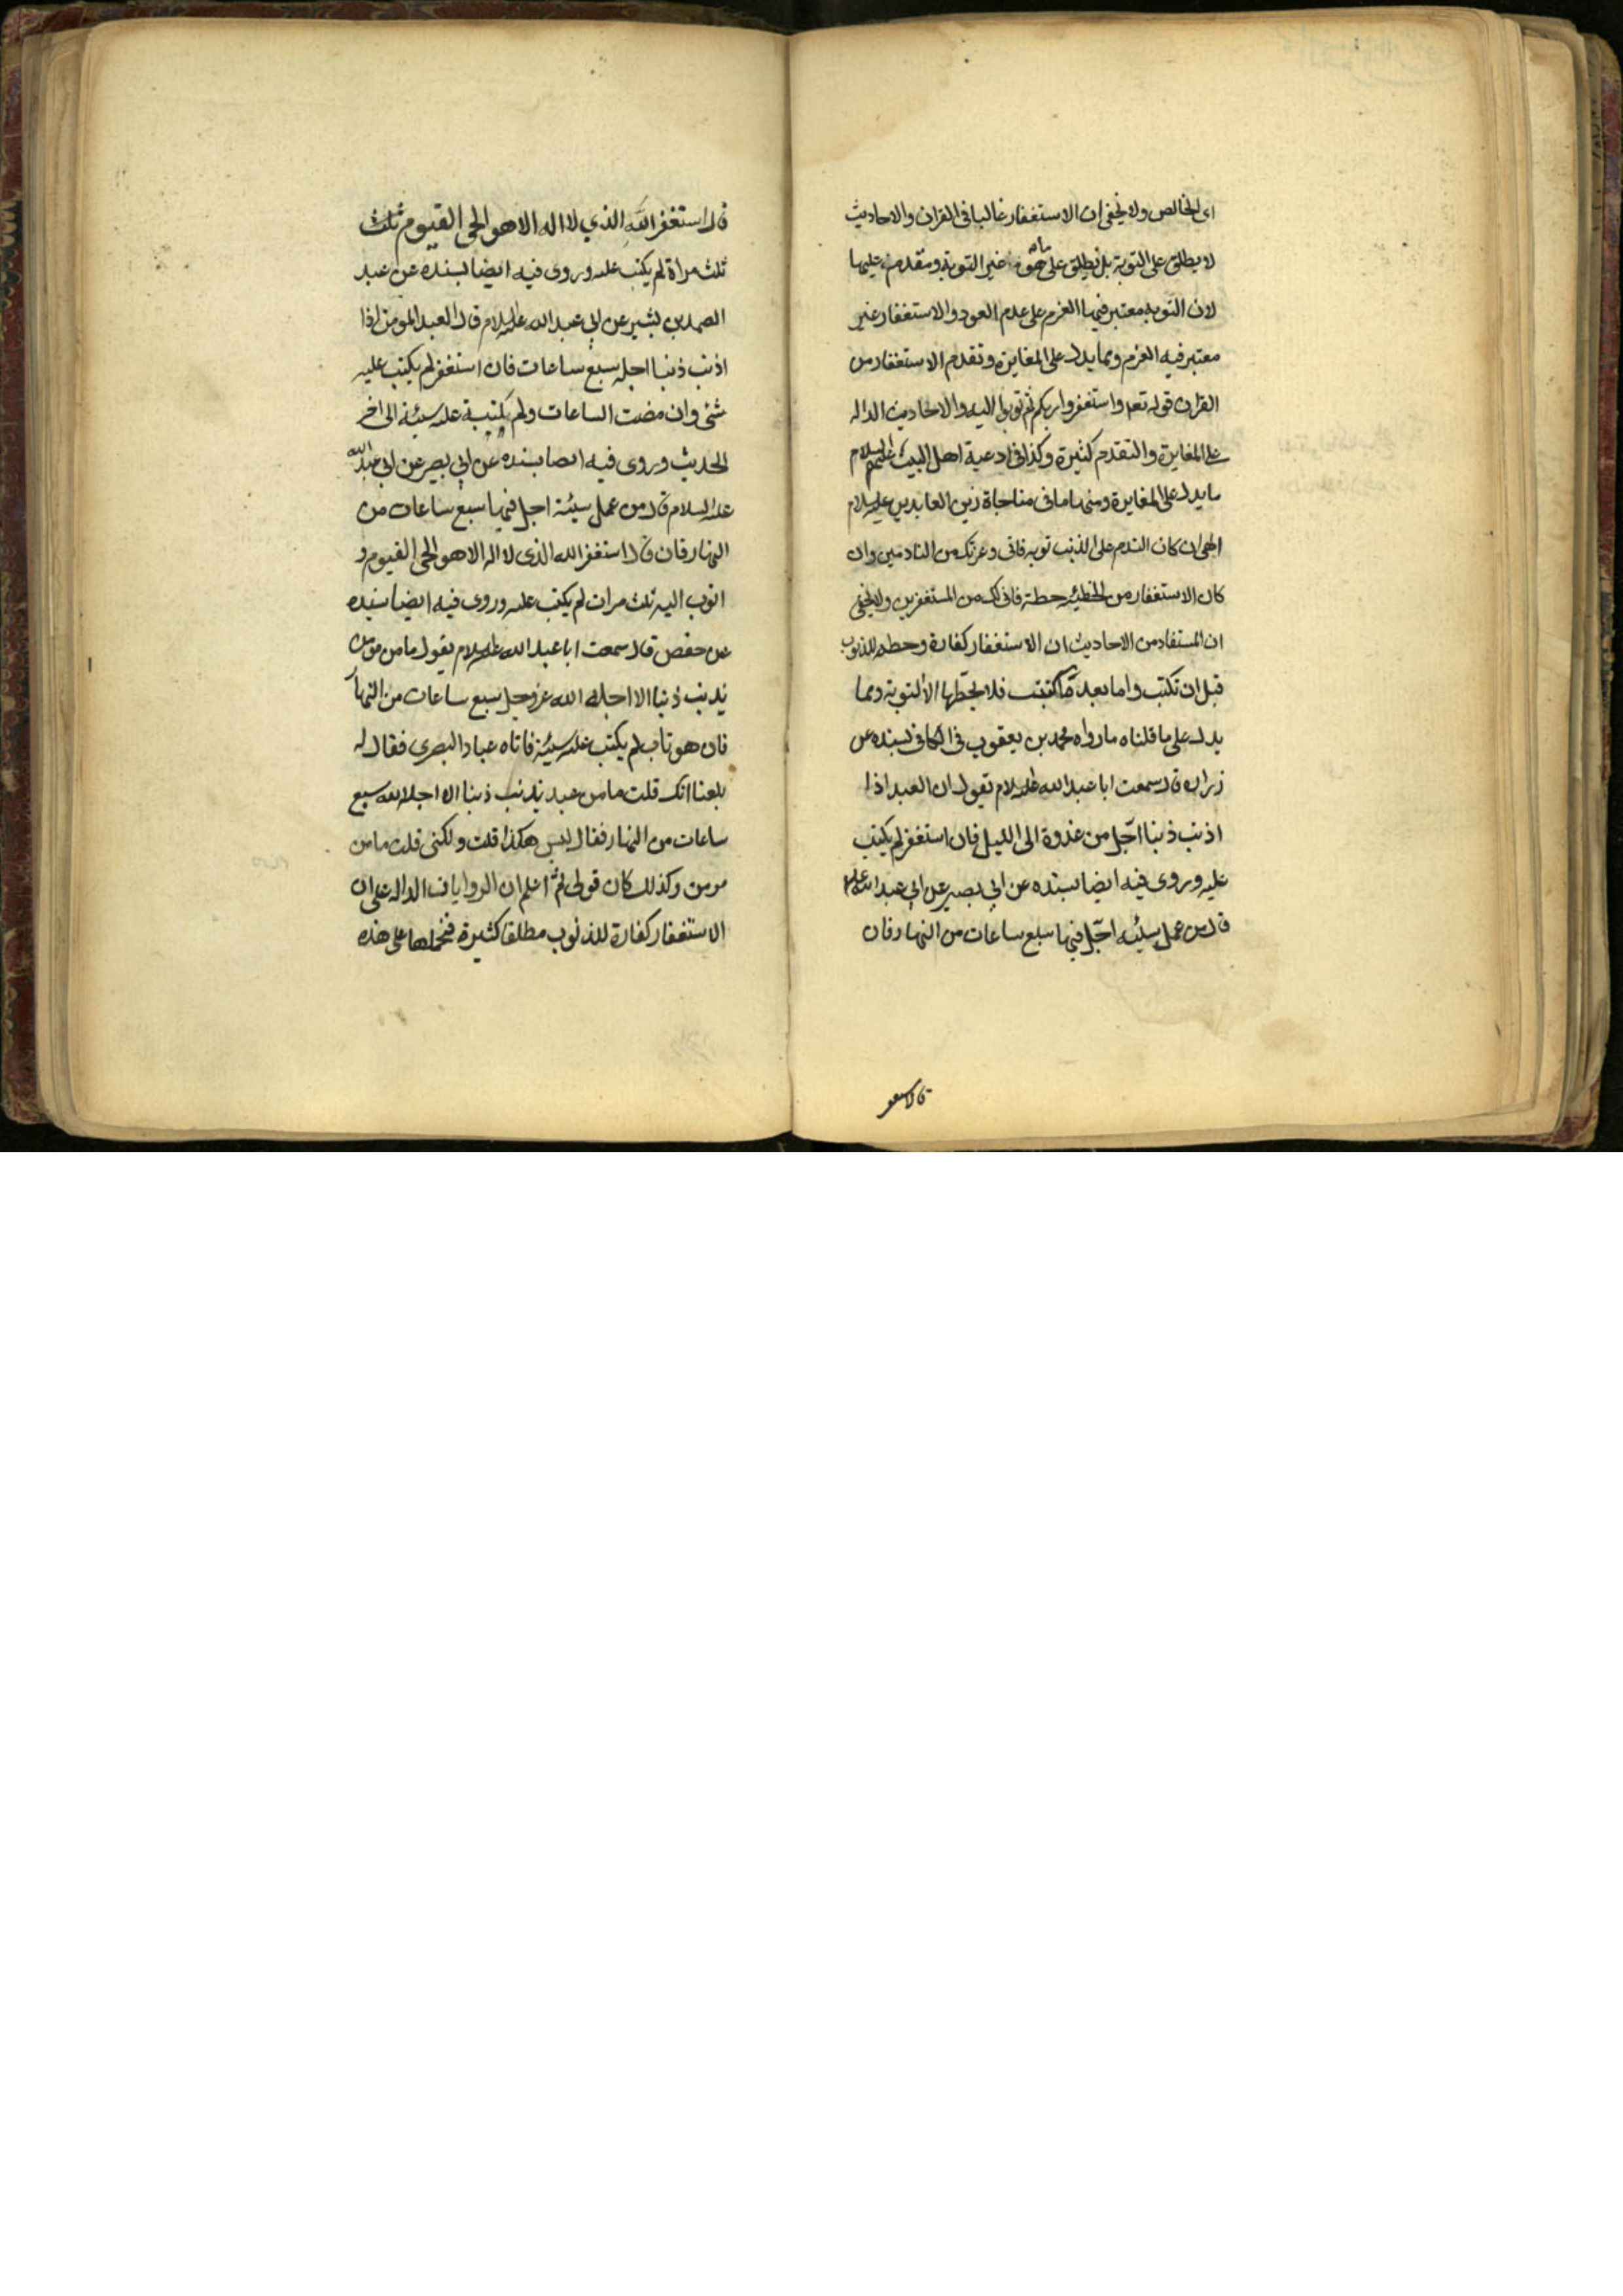 اى الخالص ولا يخفى ان الاستغفار غالبا فى القران والاحاديث
لا يطلق على التوبة بل يطلق على ما هو غير التوبة ومقدم عليها
لان التوبه معتبر فيها العزم على عدم العود والاستغفار غير
معتبر فيه العزم ومما يدل على المغايرة وتقدم الاستغفار من
القران قوله تعه واستغفروا ربكم ثم توبوا اليه والاحاديث الداله
على المغايرة والتقدم كثيرة وكذا فى ادعية اهل البيت عليهم السلام
ما يدل على المغايرة ومنها ما فى مناجاة زين العابدين عليه السلام
الهى ان كان الندم على الذنب توبه فانى وعزتك من النادمين وان
كان الاستغفار من الخطيئه حطة فانى لك من المستغفرين ولا يخفى
ان المستفاد من الاحاديث ان الاستغفار كفارة وحطه للذنوب
قبل ان تكتب واما بعد ما كتبت فلا يحطها الا التوبة ومما
يدل على ما قلناه ما رواه محمد بن يعقوب فى الكافى بسنده عن
زراره قال سمعت ابا عبد الله عليه السلام يقول ان العبد اذا
اذنب ذنبا اجّل من غدوة الى الليل فان استغفر لم يكتب
عليه وروى فيه ايضا بسنده عن ابي بصير عن ابي عبد الله عليه
قال من عمل سيئه اجّل فيها سبع ساعات من النهار فان
قال استغفر الله الذي لا اله الا هو الحى القيوم ثلث
ثلث مراة لم يكتب عليه وروى فيه ايضا بسنده عن عبد
الصمد بن بشير عن ابي عبد الله عليه السلام قال العبد المومن اذا
اذنب ذنبا اجله سبع ساعات فان استغفر لم يكتب عليه
شئ وان مضت الساعات ولم يكتبة عليه سيئة الى اخر
الحديث وروى فيه ايضا بسنده عن ابي بصير عن ابي عبد الله
عليه السلام قال من عمل سيئة اجل فيها سبع ساعات من
النهار فان قال استغفر الله الذى لا اله الا هو الحى القيوم و
اتوب اليه ثلث مرات لم يكتب عليه وروى فيه ايضا بسنده
عن حفص قال سمعت ابا عبد الله عليه السلام يقول ما من مومن
يذنب ذنبا الا اجله الله عز وجل سبع ساعات من النهار
فان هو تاب لم يكتب عليه سيئة فاتاه عباد البصرى فقال له
بلغنا انك قلت ما من عبد يذنب ذنبا الا اجله الله سبع
ساعات من النهار فقال ليس هكذا قلت ولكنى قلت ما من
مومن وكذلك كان قولى ثم اعلم ان الروايات الداله على ان
الاستغفار كفارة للذنوب مطلقا كثيرة فنحملها على هذه